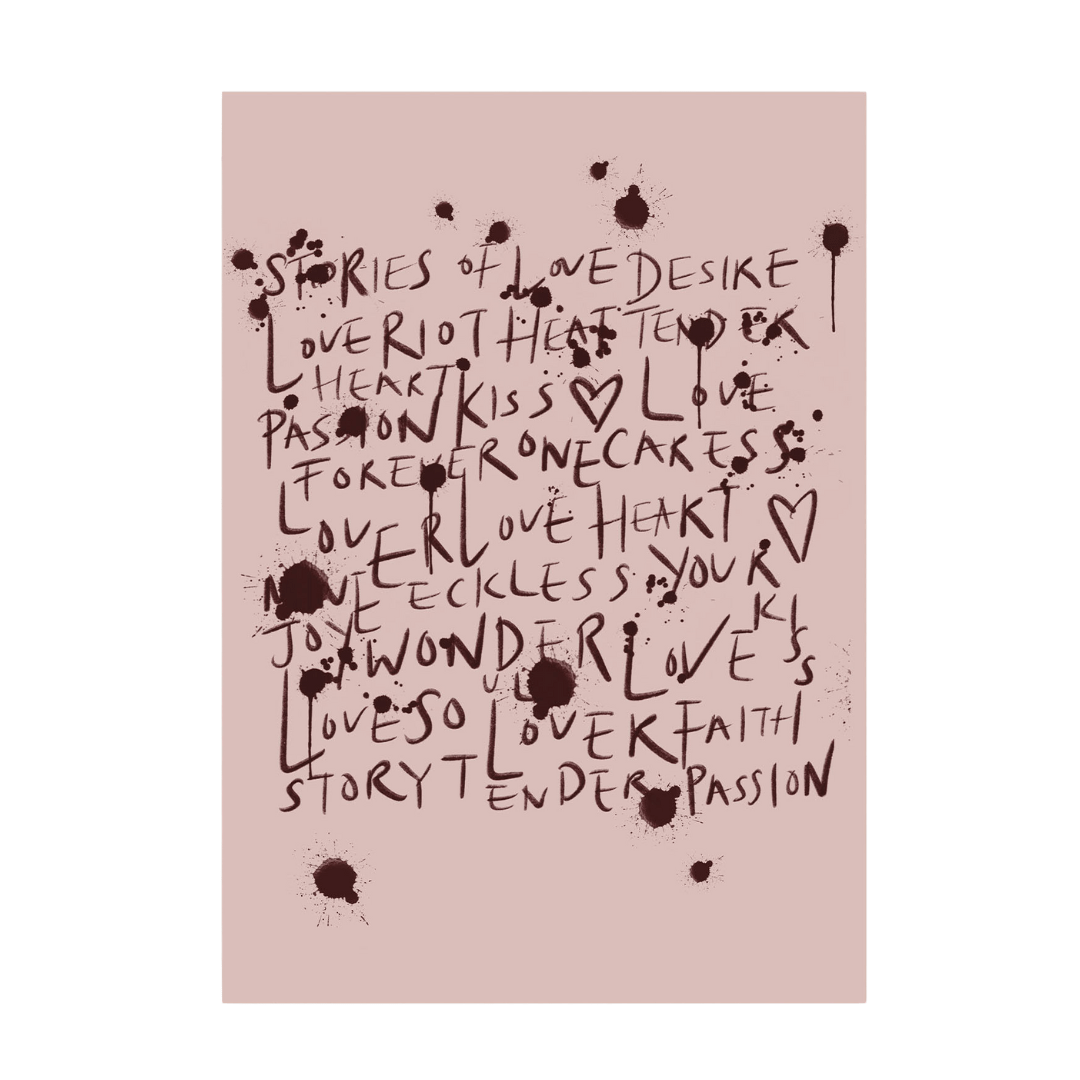 STORIES OF LOVE DESIRE
LOVE RIOT HEAT TENDER
HEART KISS ♡ LOVE
PASSION
FOREVER ONE CARESS
LOVER LOVE HEART ♡
ECKLESS YOUR
JOY WONDER LOVE KISS
LOVE SO LOVER FAITH
STORY TENDER PASSION